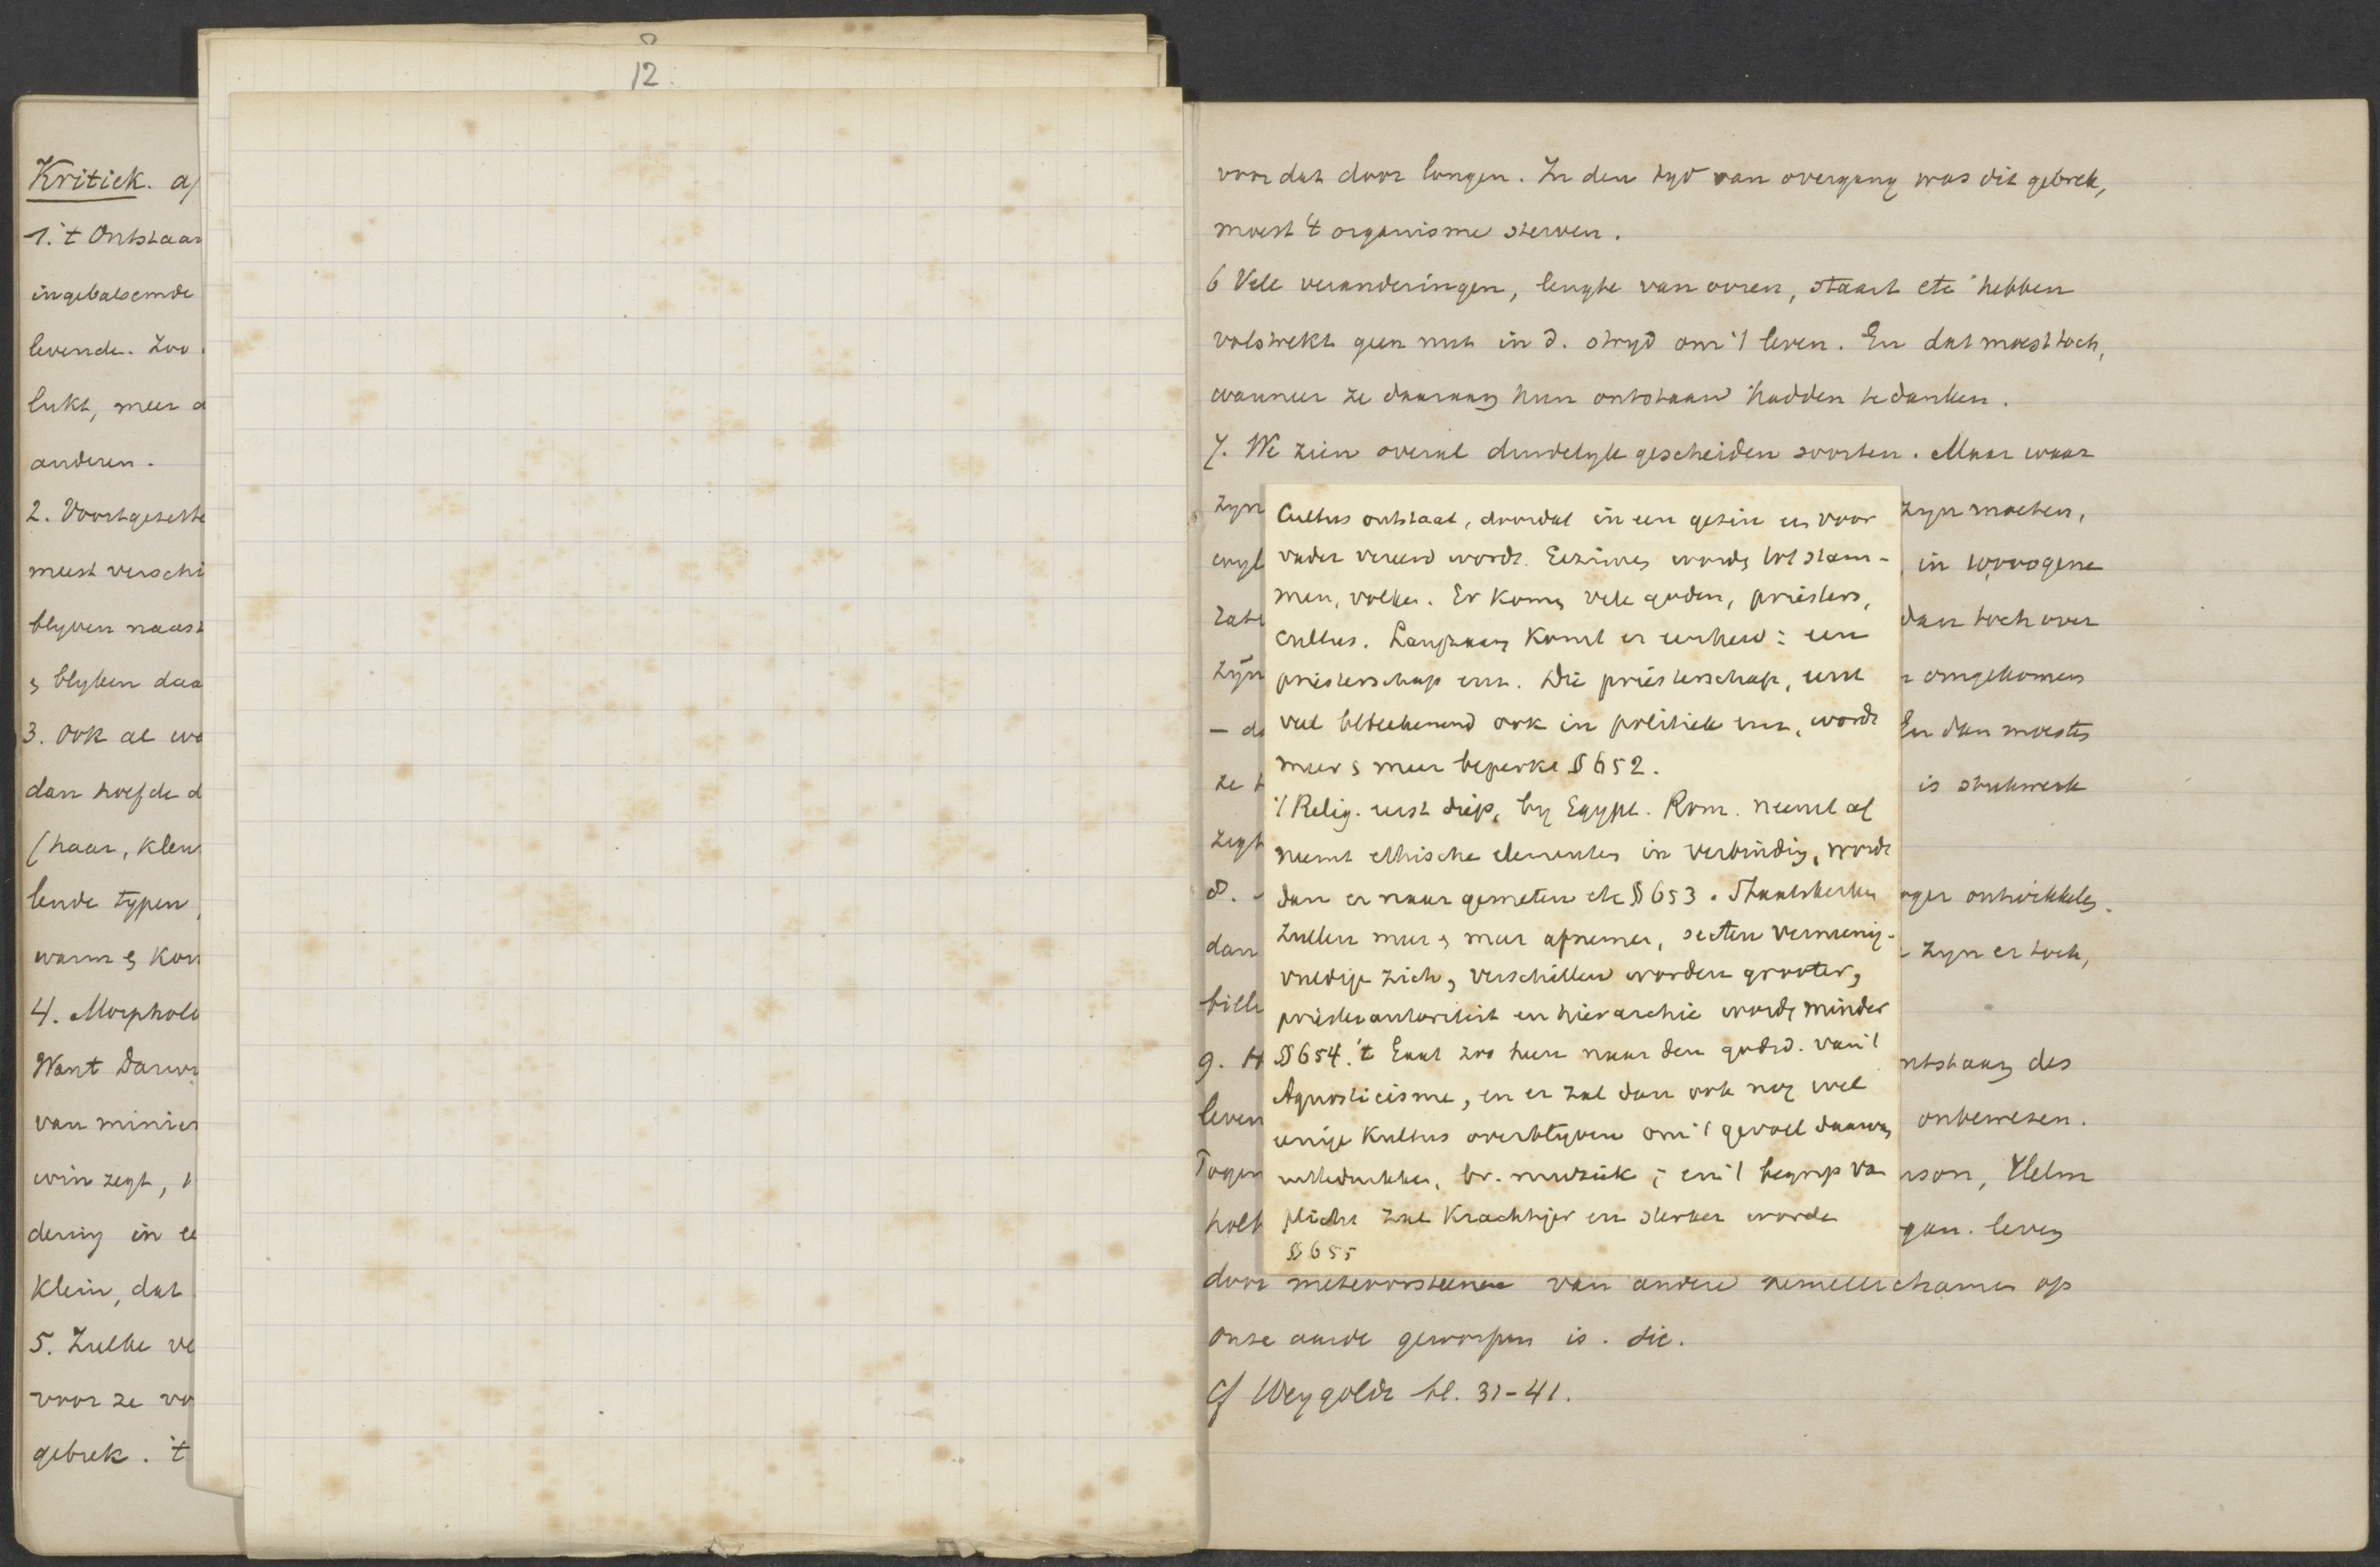 12.
Kritiek. a)
1. 't Ontstaan
ingebalsemde
levende. Zoo
lukt, meer
anderen.
2. Voortgezette
meest verschi
blyven naast
blyken daa
3. Ook al wa
dan hoefde d
(haar, kleur
lende typen,
warm & kou
4. Morpholo
Want Darwi
van minier
win zegt,
dering in
klein, dat
5. Zulke ve
voor ze vo
gebrek. 't
voor dat door longen. In den tyd van overgang was dit gebrek,
moest 't organisme sterven.
6 Vele veranderingen, lengte van ooren, staart etc hebben
volstrekt geen nut in d. stryd om 't leven. En dat moest toch,
wanneer ze daaraan hun ontstaan hadden te danken.
7. We zien overal duidelyk gescheiden soorten. Maar waar
zyn
zyn moeten,
in
dan toch over
zyn
omgekomen
En dan moesten
ze
is stukwerk
zegt
8.
oger ontwikkelen.
dan
zyn er toch,
9. H
ntstaan des
leven
onbewezen.
Tegen
nson, Helm
holt
gan. leven
door meteoorsteenen van andere hemellichamen op
onze aarde geworpen is. sic.
Cf Weygoldt bl. 31-41.
Cultus ontstaat, doordat in een gezin een voor
vader vereerd wordt. Gezinnen worden tot stam-
men, volken. Er komen vele goden, priesters,
cultus. Langzaam komt er eenheid: een
priesterschap enz. Die priesterschap, eerst
veel beteekenend ook in politiek enz, wordt
meer & meer beperkt § 652.
't Relig. eerst diep, by Egypt. Rom. neemt af
neemt ethische elementen in verbinding, wordt
dan er naar gemeten etc § 653. Staatskerken
zullen meer & meer afnemen, secten vermenig-
vuldigen zich, verschillen worden grooter,
priesterautoriteit en hierarchie worden minder
§ 654. 't Gaat zoo heen naar den godsd. van 't
Agnosticisme, en er zal dan ook nog wel
eenige Kultus overblyven om 't gevoel daarvan
uittedrukken, bv. muziek; en 't begrip van
plicht zal krachtiger en sterker worden
§ 655